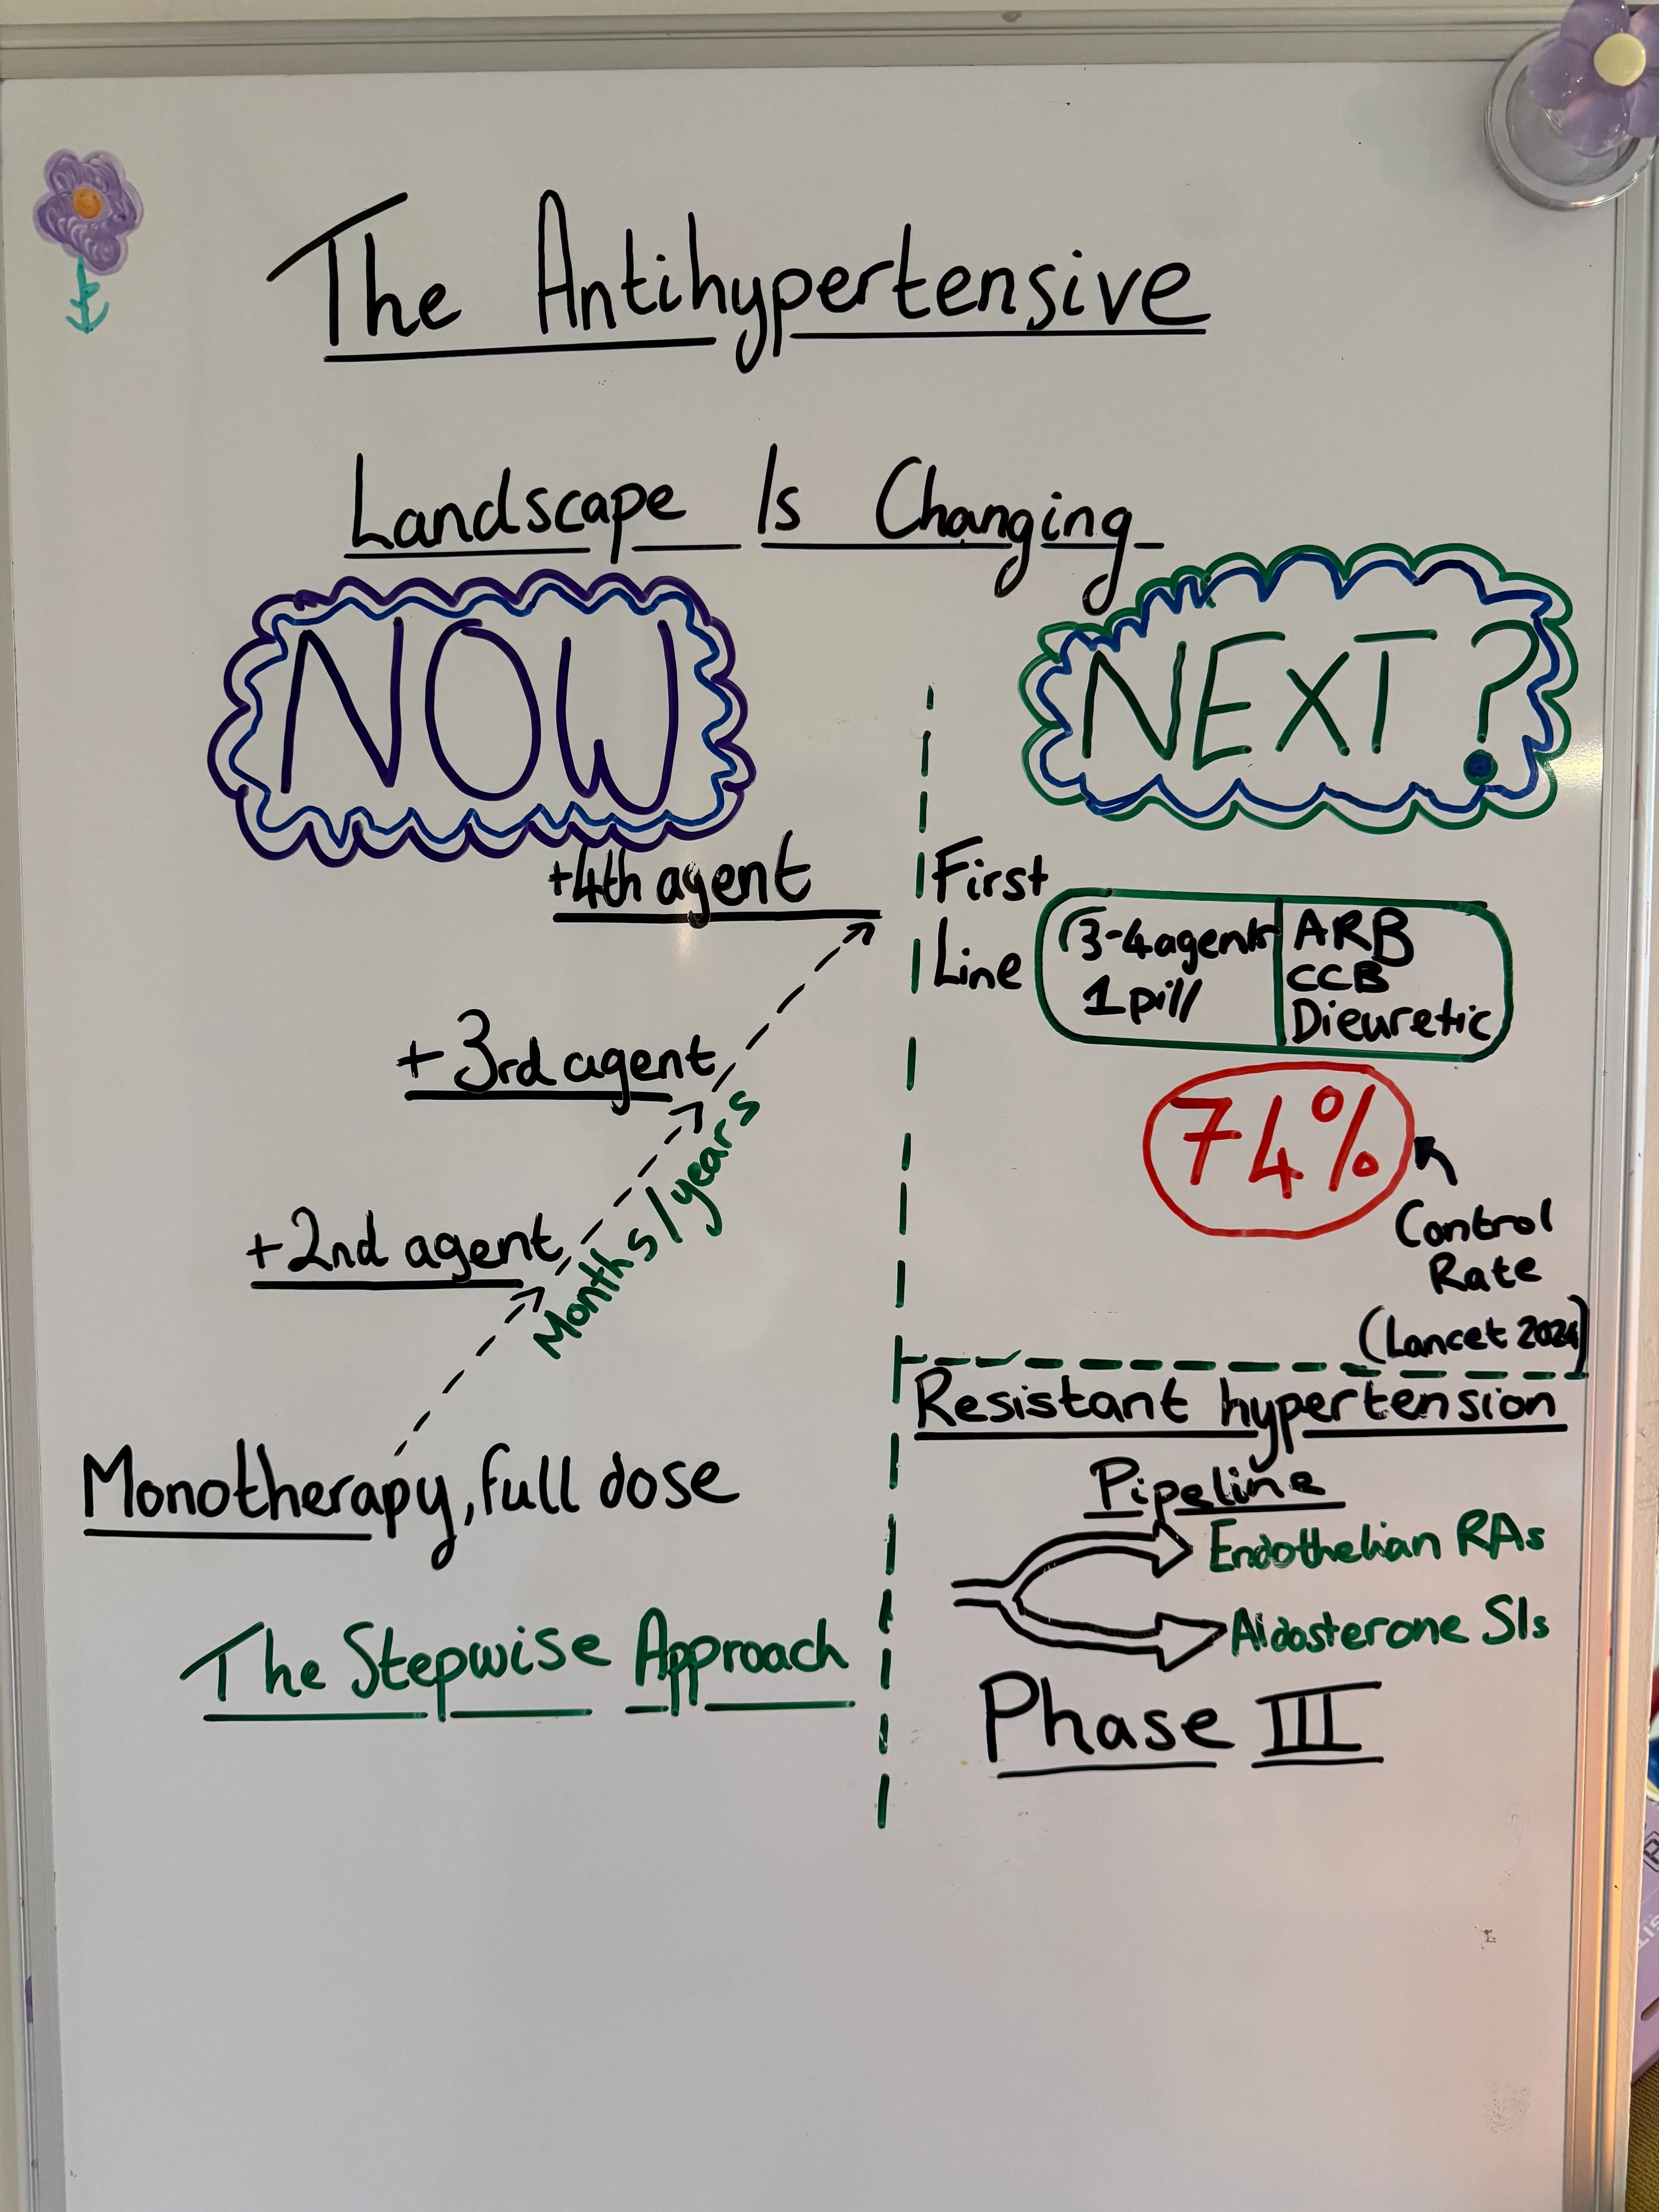 The Antihypertensive
Landscape Is Changing
NOW
+4th agent
+ 3rd agent
+2nd agent
Months/years
Monotherapy, full dose
The Stepwise Approach
NEXT?
First
Line
3-4 agents
1 pill
ARB
CCB
Dieuretic
74%
Control
Rate
(Lancet 2024)
Resistant hypertension
Pipeline
Endothelian RAs
Aldosterone SIs
Phase III